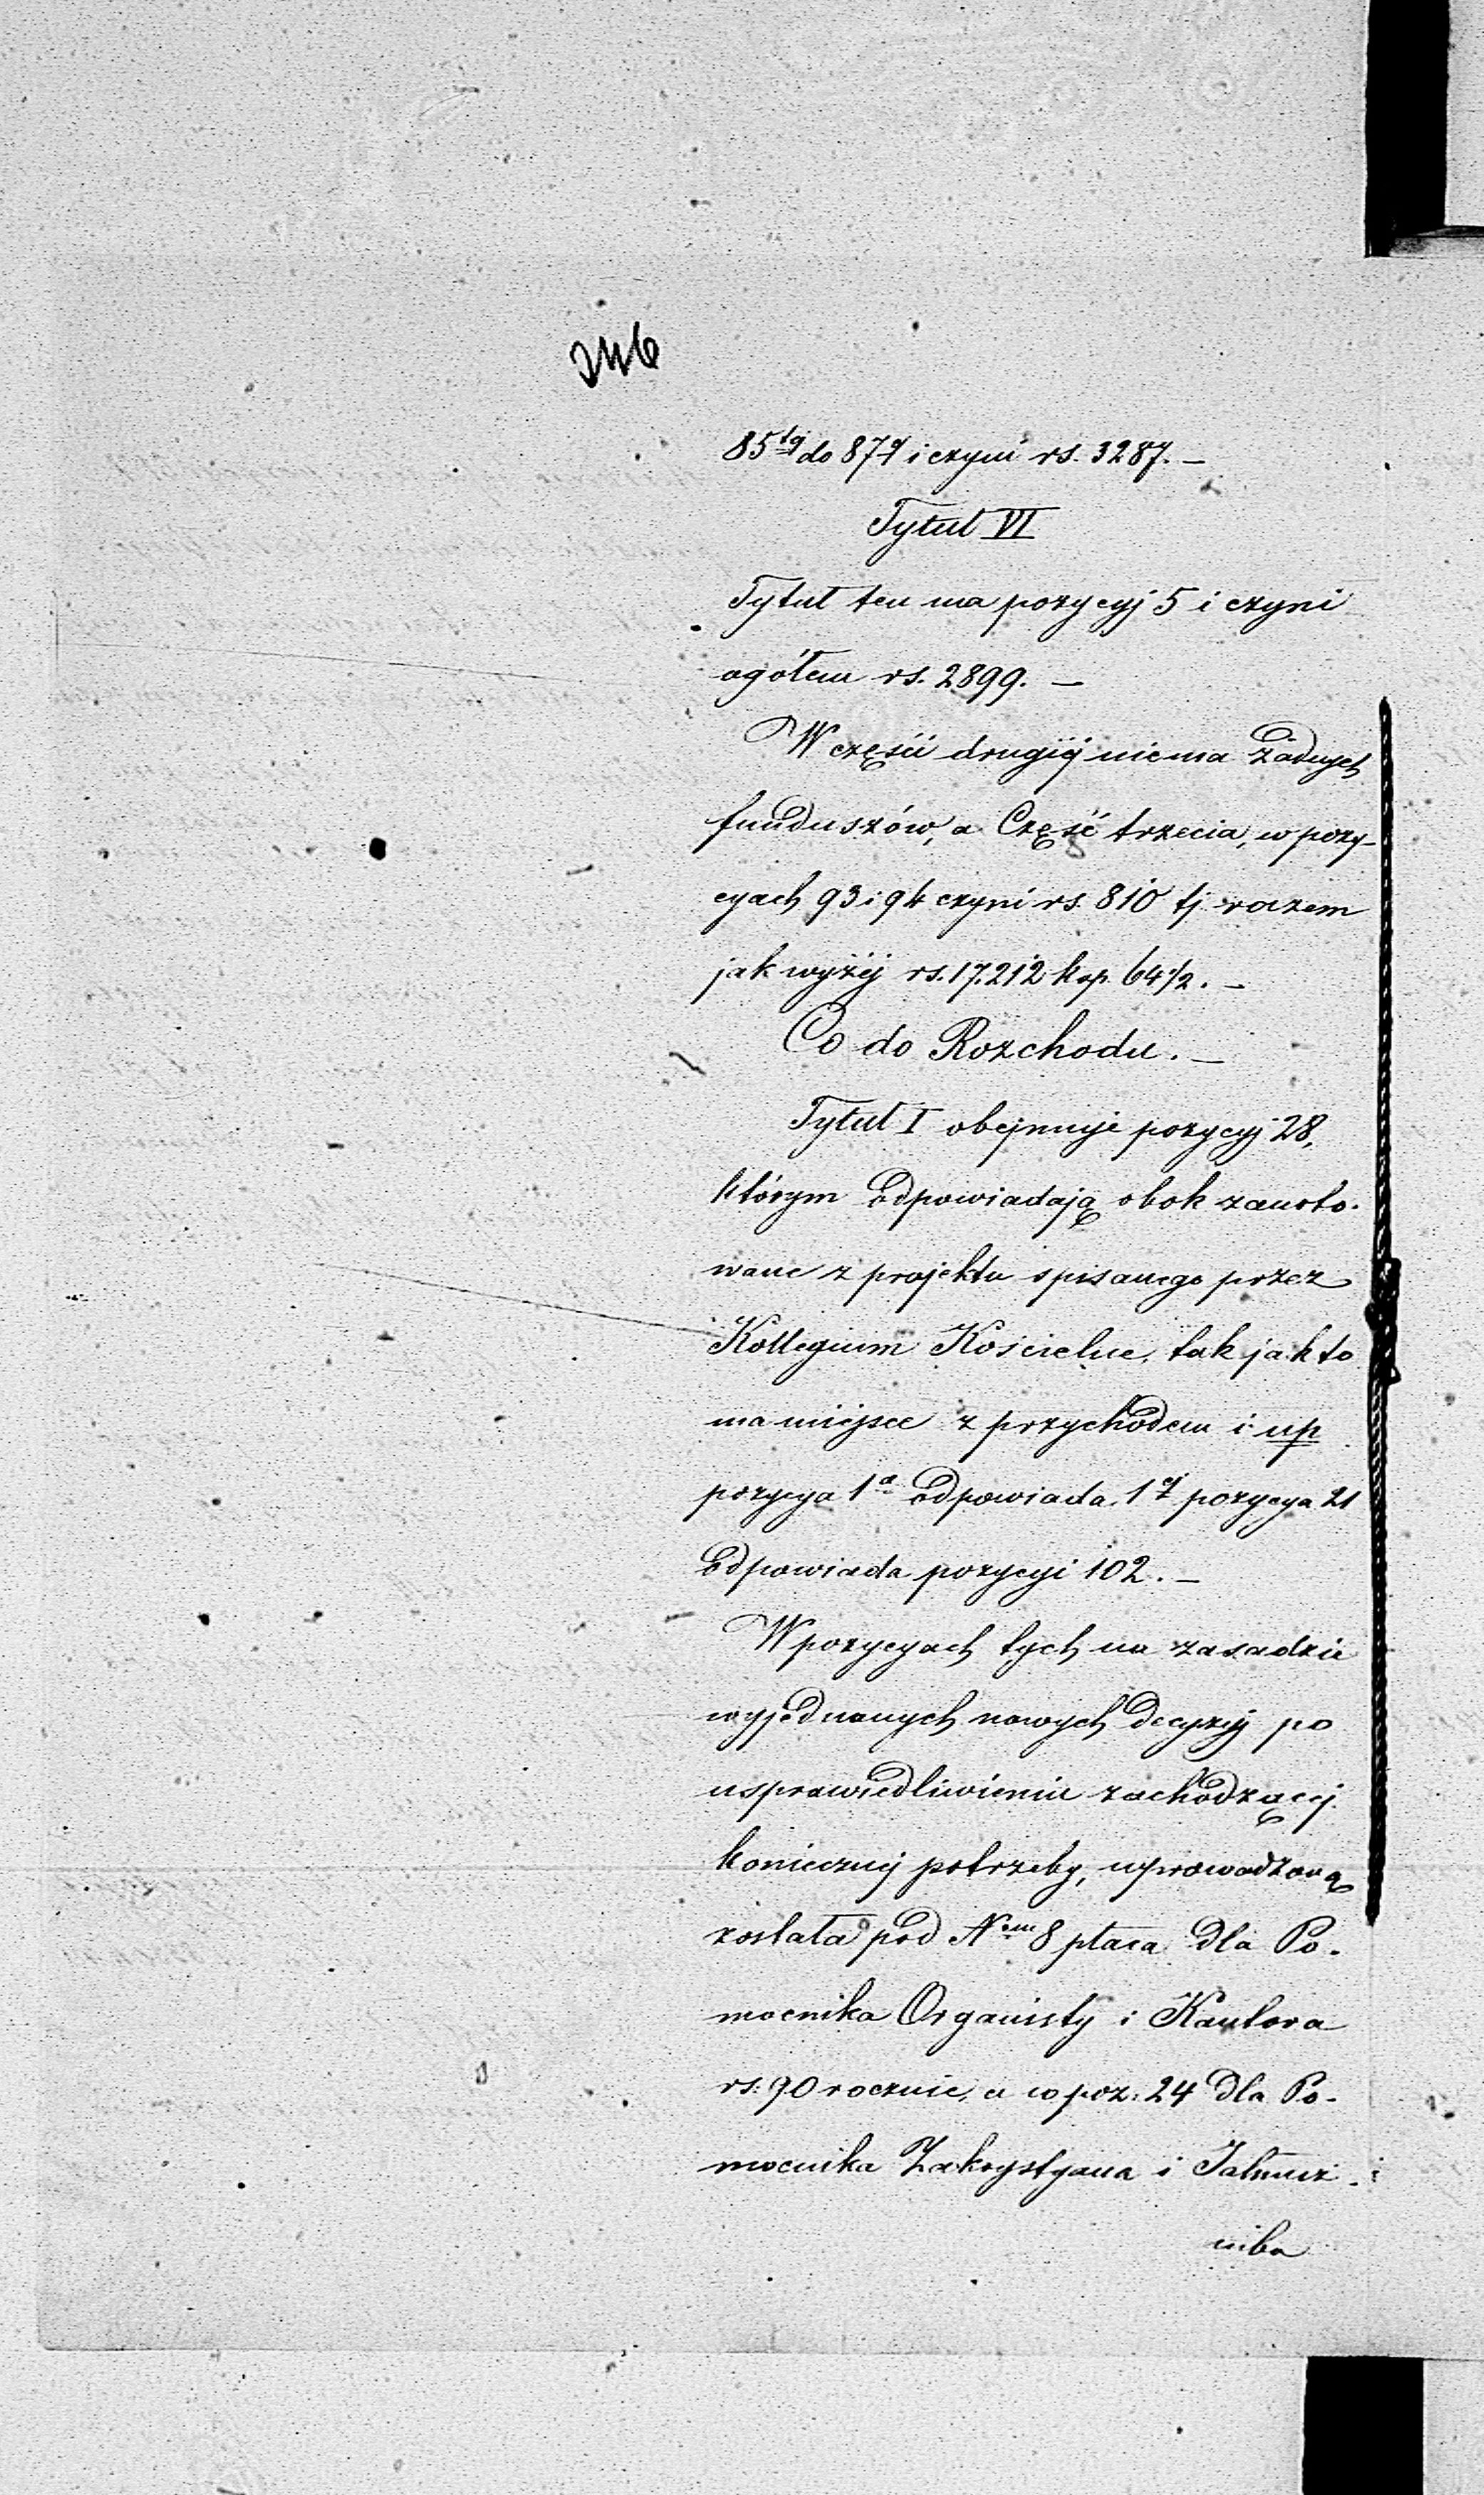 246
85tej do 87ej i czyni rs. 3287. —
Tytuł VI
Tytuł ten ma pozycyj 5 i czyni
ogółem rs. 2899. —
W części drugiéj niema żadnych
funduszów, a Część trzecia, w pozy-
cyach 93 i 94 czyni rs. 810 tj. razem
jak wyżéj rs. 17.212 kop. 64 1/2. —
Co do Rozchodu. —
Tytuł I obejmuje pozycyj 28,
którym odpowiadają obok zanoto-
wane z projektu spisanego przez
Kollegium Kościelne, tak jak to
ma miéjsce z przychodem i np
pozycya 1a odpowiada 1ej pozycya 21
odpowiada pozycyi 102. —
W pozycyach tych na zasadzie
wyjednanych nowych decyzyj po
usprawiedliwieniu zachodzącéj
koniecznéj potrzeby, wprowadzoną
została pod Nem 8 płaca dla Po-
mocnika Organisty i Kantora
rs: 90 rocznie, a w poz: 24 dla Po-
mocnika Zakrystyana i Jałmuż-
nika